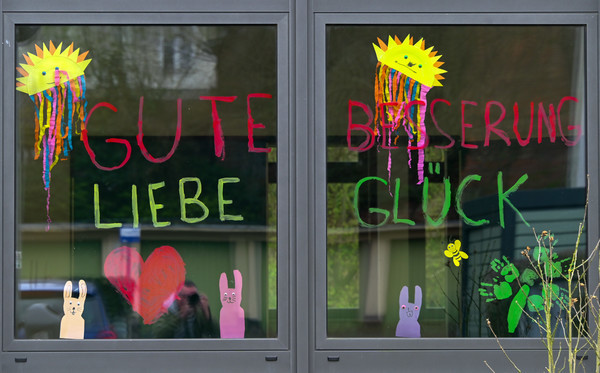 GUTE BESSERUNG
LIEBE GLÜCK